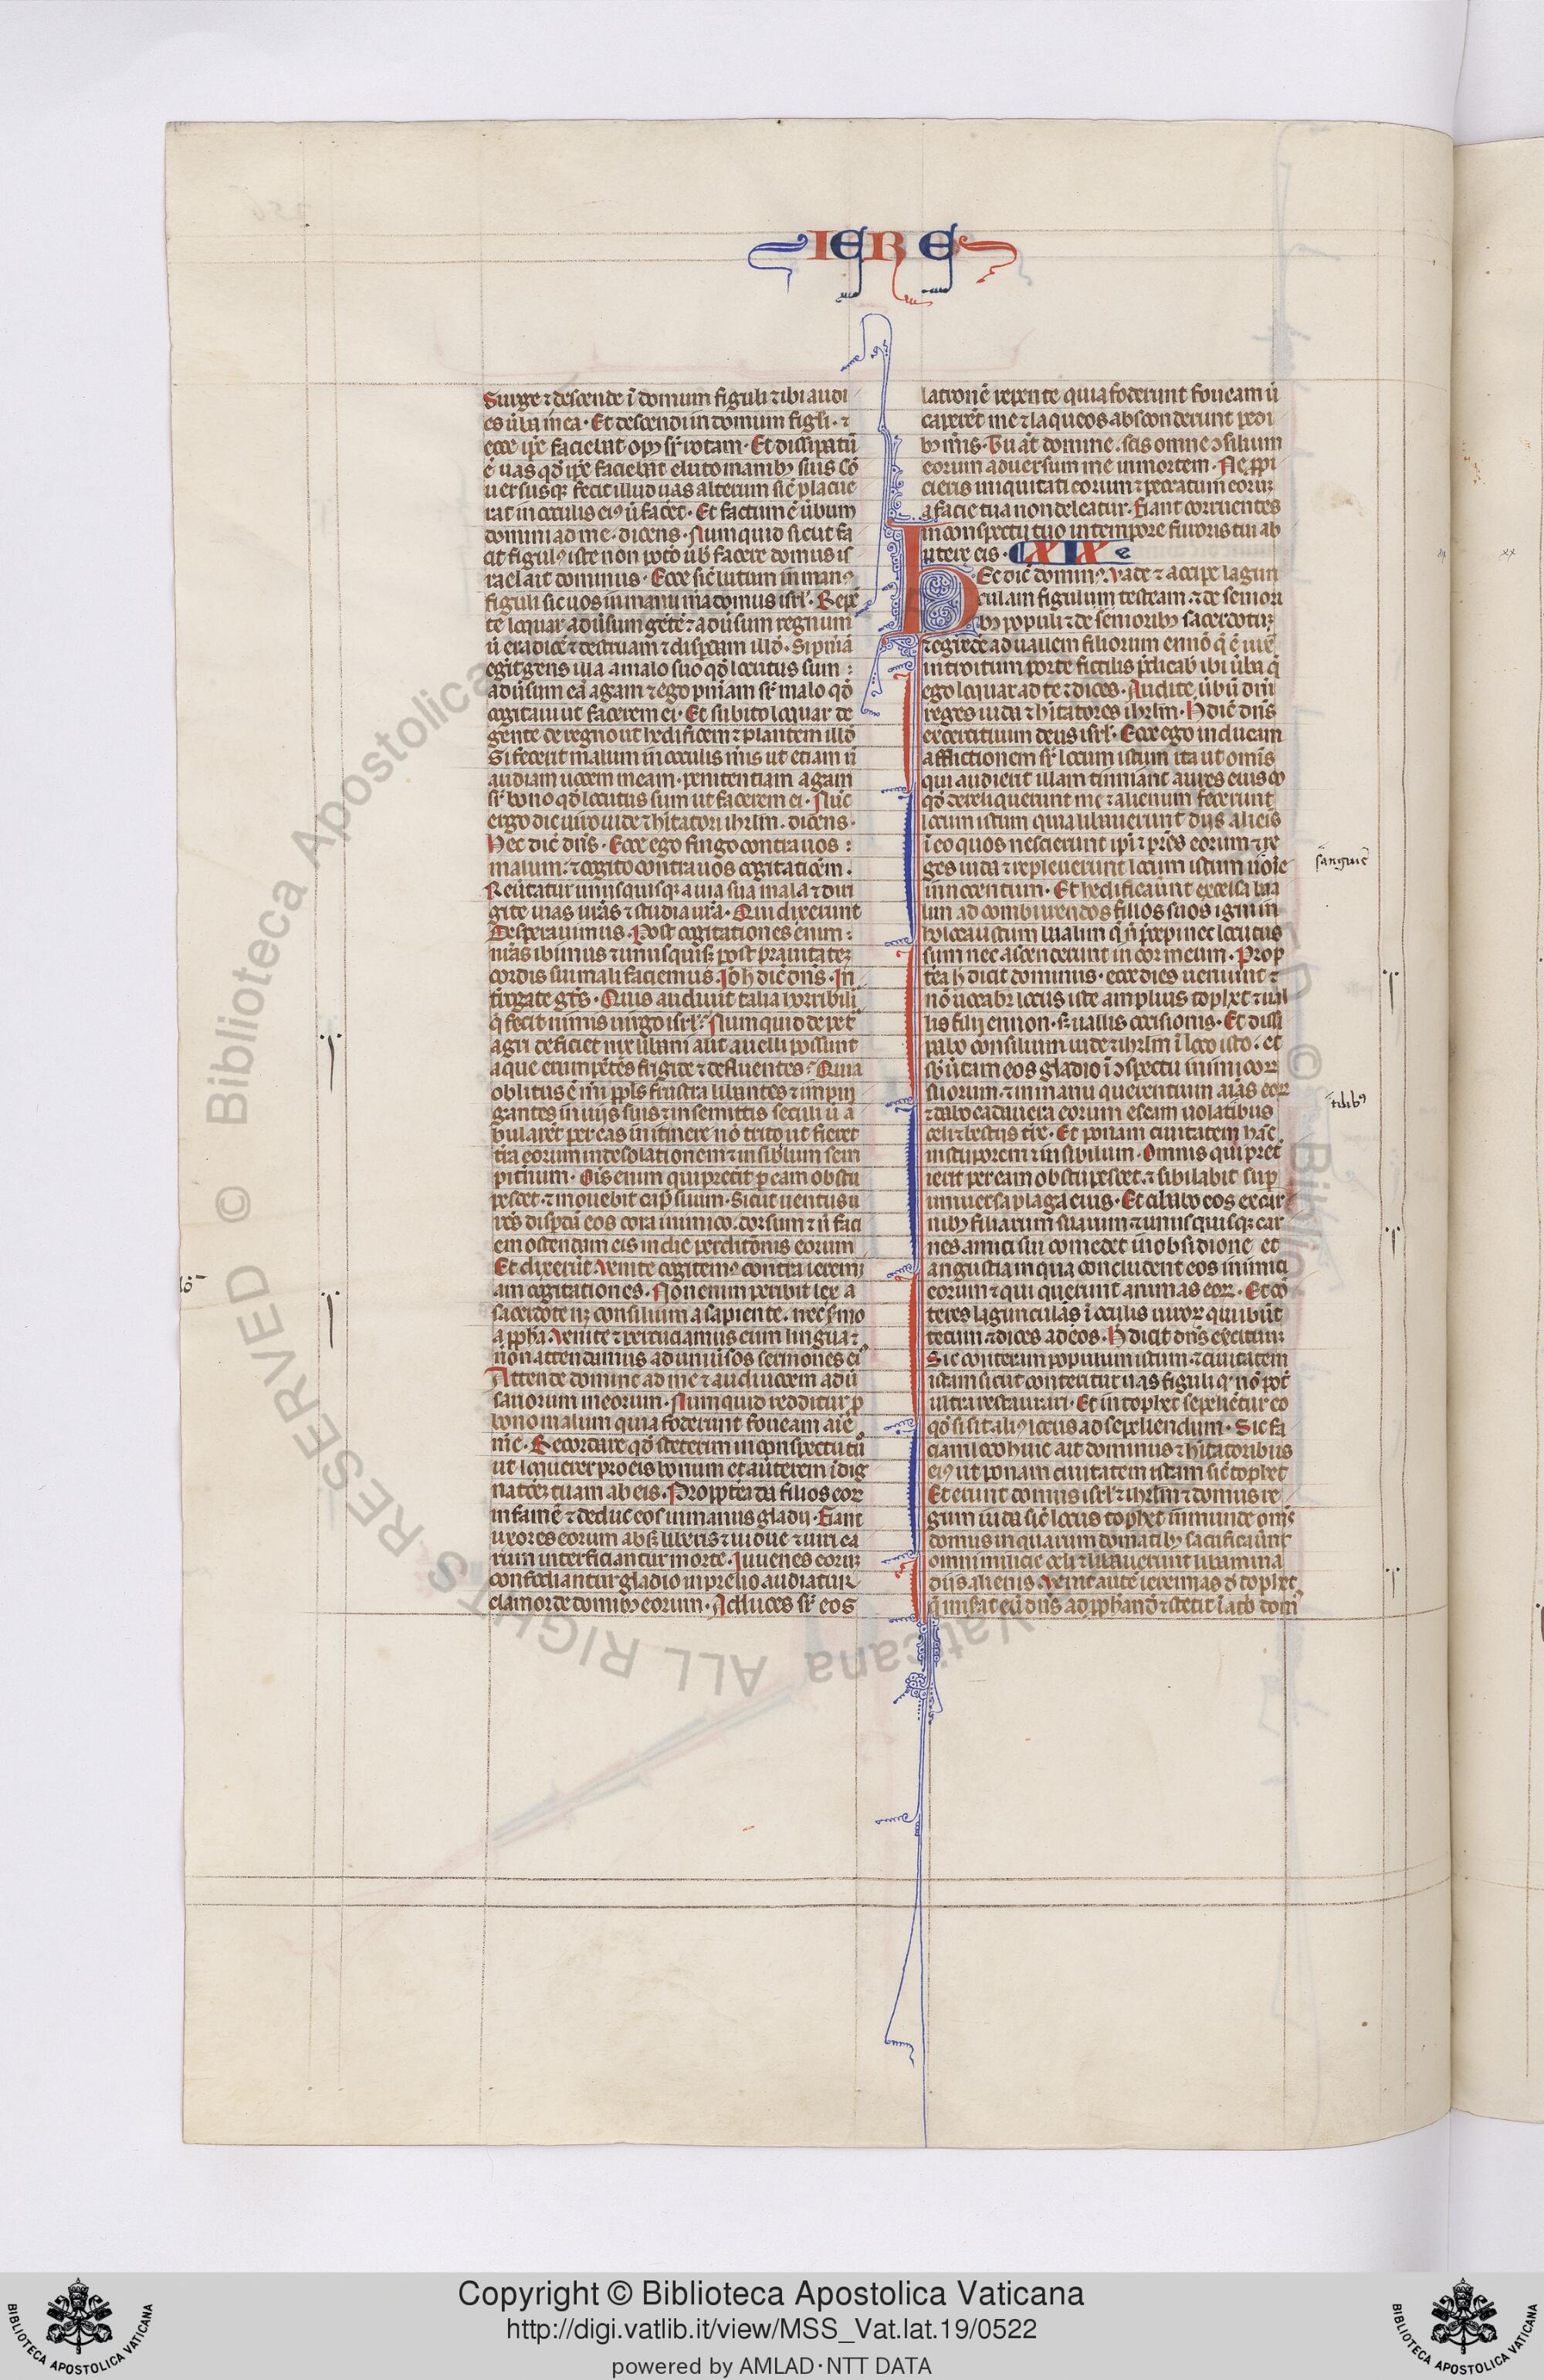 IERE
Surge ⁊ descende ı̄ domum figuli ⁊ ibi audi
es ūba mea. Et descendi in domum figli. ⁊
ecce ip̄e faciebat opꝰ sr̄ rotam. Et dissipatū
ē uas qd̄ ip̄e faciebat e luto manibꝫ suis Cō
uersusqꝫ fecit illud uas alterum sic̄ placue
rat in oculis eiꝰ ū facēt. Et factum ē ūbum
domini ad me. dicens. Numquid sicut fa
cit figulꝰ iste non potō uob̄ facere domus is
rael ait dominus. Ecce sic̄ lutum in manꝰ
figuli sic uos in manu m̄a domus isrl̄. Repē
te loquar adūsum gētē ⁊ adūsum regnum
ū eradicē ⁊ destruam ⁊ disp̄dam illō. Si pn̄iā
egīt gens illa a malo suo qd̄ locutus sum
adūsum eā agam ⁊ ego pn̄iam sr̄ malo qd̄
cogitaui ut facerem ei. Et subito loquar de
gente de regno ut hedificem ⁊ plantem illō
Si fecerit malum in oculis m̄is ut etiam ñ
audiam uocem meam. penitentiam agam
sr̄ bono qd̄ locutus sum ut facerem ei. Nūc
ergo dic uiro iude ⁊ hītatori ihrlm̄. dicens.
Hec dic̄ dn̄s. Ecce ego fingo contra uos
malum. ⁊ cogito contra uos cogitatiōem.
Reūtatur unusquisqꝫ a uia sua mala ⁊ diri
gite uias ur̄as ⁊ studia ur̄a. Qui dixerunt
Desperauimus. Post cogitationes enim
nr̄as ibimus ⁊ unusquisqꝫ post prauitatēꝫ
cordis sui mali faciemus. Iō h̄ dic̄ dn̄s. In
t̄rogate gēs. Quis audiuit talia horribili
q̄ fecit nimis uirgo isrl̄. Numquid de pet̄
agri deficiet nix libani aut auelli possunt
aque erumpētes frigide ⁊ defluentes. Quia
oblitus ē mi ppl̄s frustra libantes ⁊ impin
gentes in uijs suis ⁊ in semittis seculi ū a
bularēt per eas in itinere nō trito ut fieret
tr̄a eorum in desolationem ⁊ in sibilum sem
pitnum. Ois enim qui prec̄it p eam obstu
pescet. ⁊ mouebit cap̄ suum. Sicut uentus u
rēs disp̄dā eos corā inimico. dorsum ⁊ ñ faci
em ostendam eis in die perditōnis eorum
Et dixerūt Venite cogitemꝰ contra ieremi
am cogitationes. Nōn enim peribit lex a
sacerdote neqꝫ consilium a sapiente. nec s̄mo
a pph̄a. Venite ⁊ percuciamus eum lingua ⁊
non attendamus ad uniūsos sermones eiꝰ
Attende domine ad me ⁊ audi uocem adū
sariorum meorum. Numquid redditur p
bono malum quia foderunt foueam aīe
m̄e. Recordare qd̄ steterim in conspectu tuo
ut loquerer pro eis bonum et auerterem ı̄dig
nat̄oēꝫ tuam ab eis. Proptērea da filios eoꝝ
in famē ⁊ deduc eos in manus gladij. Fiant
uxores eorum absqꝫ liberis ⁊ uidue ⁊ uiri ea
rum interficiantur morte. Iuuenes eoruꝫ
confodiantur gladio in prelio audiatur
clamor de domibꝫ eorum. Adduces sr̄ eos
latronē repente quia foderunt foueam ū
caperēt me ⁊ laqueos absconderunt pedi
bꝫ m̄is. Tu aūt domine. scis omne ꝯsilium
eorum aduersum me in mortem. Ne ppi
cieris iniquitati eorum ⁊ peccatum eoruꝫ
a facie tua non deleatur. Fiant corruentes
in conspectu tuo in tempore furoris tui ab
utere eis. XIX
Hec dic̄ dominꝰ. Vade ⁊ accipe lagun
culam figulum testeam. ⁊ de seniori
bꝫ populi ⁊ de senioribꝫ sacerdotuꝫ
⁊ egrede ad uallem filiorum ennō q̄ ē iux̄
introitum porte fictilis p̄dicab̄ ibi ūba q̄
ego loquar ad te ⁊ dices. Audite ūbū dn̄i
reges iuda ⁊ hītatores ihrlm̄. H̄ dic̄ dn̄s
exercituum deus isrl̄. Ecce ego inducam
afflictionem sr̄ locum istum ita ut omīs
qui audierit illam tinniant aures eius eo
qd̄ dereliquerunt me ⁊ alienum fecerunt
locum istum quia libauerunt dijs alieīs
ı̄ eo quos nescierunt ip̄i ⁊ p̄res eorum ⁊ re
ges iuda ⁊ repleuerunt locum istum
sanguiē
innocentum. Et hedificaūnt excelsa baa
lim ad comburendos filios suos igni in
holocaustum baalim q̄ ñ p̄cepi nec locutus
sum nec ascenderunt in cor meum. Prop
tēa h̄ dicit dominus. ecce dies ueniunt ⁊
nō uocabr̄ locus iste amplius tophet ⁊ ual
lis filij ennon. sꝫ uallis occisionis. Et dissi
pabo consilium iude ⁊ ihrlm̄ ı̄ loco isto. et
sb̄ūtam eos gladio ı̄ ꝯspectu inimicoꝝ
suorum. ⁊ in manu querentium aīas eoꝝ
⁊ dabo cadauera eorum escam uolatibus
tilibꝰ
celi ⁊ bestijs tr̄e. Et ponam ciuitatem hāc
in stuporem ⁊ in sibilum. Omnis qui pret̄
ierit per eam obstupescet. ⁊ sibilabit sup
uniuersa plaga eius. Et cibabo eos ex car
nibꝫ filiarum suarum ⁊ unusquisqꝫ car
nes amici sui comedet in obsidione et
angustia in qua concludent eos inimici
eorum ⁊ qui querunt animas eoꝝ. Et cō
teres lagunculās ı̄ oculis uiroꝝ qui ibūt
tecum ⁊ dices ad eos. H̄ dicit dn̄s exercituuꝫ
Sic conteram populum istum. ⁊ ciuitatem
istam sicut conteritur uas figuli qd̄ nō pot̄
ultra restaurari. Et in tophet sepeliētur eo
qd̄ si sit aliꝰ locus ad sepeliendum. Sic fa
ciam loco huic ait dominus ⁊ hītatoribus
eiꝰ ut ponam ciuitatem istam sic̄ tophet
Et erunt domus isrl̄ ⁊ ihrlm̄ ⁊ domus re
gum iuda sic̄ locus tophet inmunde om̄s
domus in quarum domatibꝫ sacrificaūnt
omni milicie celi ⁊ libauerunt libamina
dijs alienis. Venit autē ieremias d̄ tophet
q̄ misat eū dn̄s ad pph̄andū ⁊ stetit ı̄ at̄o dom̄
Copyright © Biblioteca Apostolica Vaticana
http://digi.vatlib.it/view/MSS_Vat.lat.19/0522
powered by AMLAD·NTT DATA
BIBLIOTECA APOSTOLICA VATICANA
BIBLIOTECA APOSTOLICA VATICANA